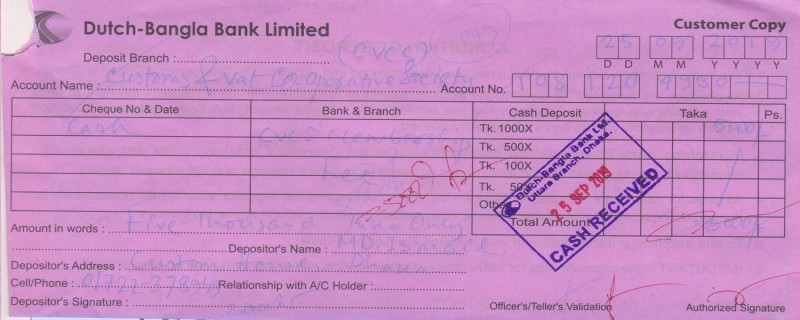 Dutch-Bangla Bank Limited
Customer Copy
25 09 2019
D D M M Y Y Y Y
Deposit Branch :
(CVCS)
Account Name : Customs & Vat Co-operative Society
Account No. 108 120 4930
Cheque No & Date Bank & Branch Cash Deposit Taka Ps.
Cash CVCS Membership Tk. 1000X 5000/-
Tk. 500X
Fee Tk. 100X
Tk. 50X
Total Amount 5000/-
Dutch-Bangla Bank Ltd.
Uttara Branch, Dhaka.
25 SEP 2019
CASH RECEIVED
Amount in words : Five Thousand Taka Only
Depositor's Name : MD. Ismail
Depositor's Address : Custom House Dhaka
Cell/Phone : Relationship with A/C Holder :
Depositor's Signature :
Officer's/Teller's Validation Authorized Signature